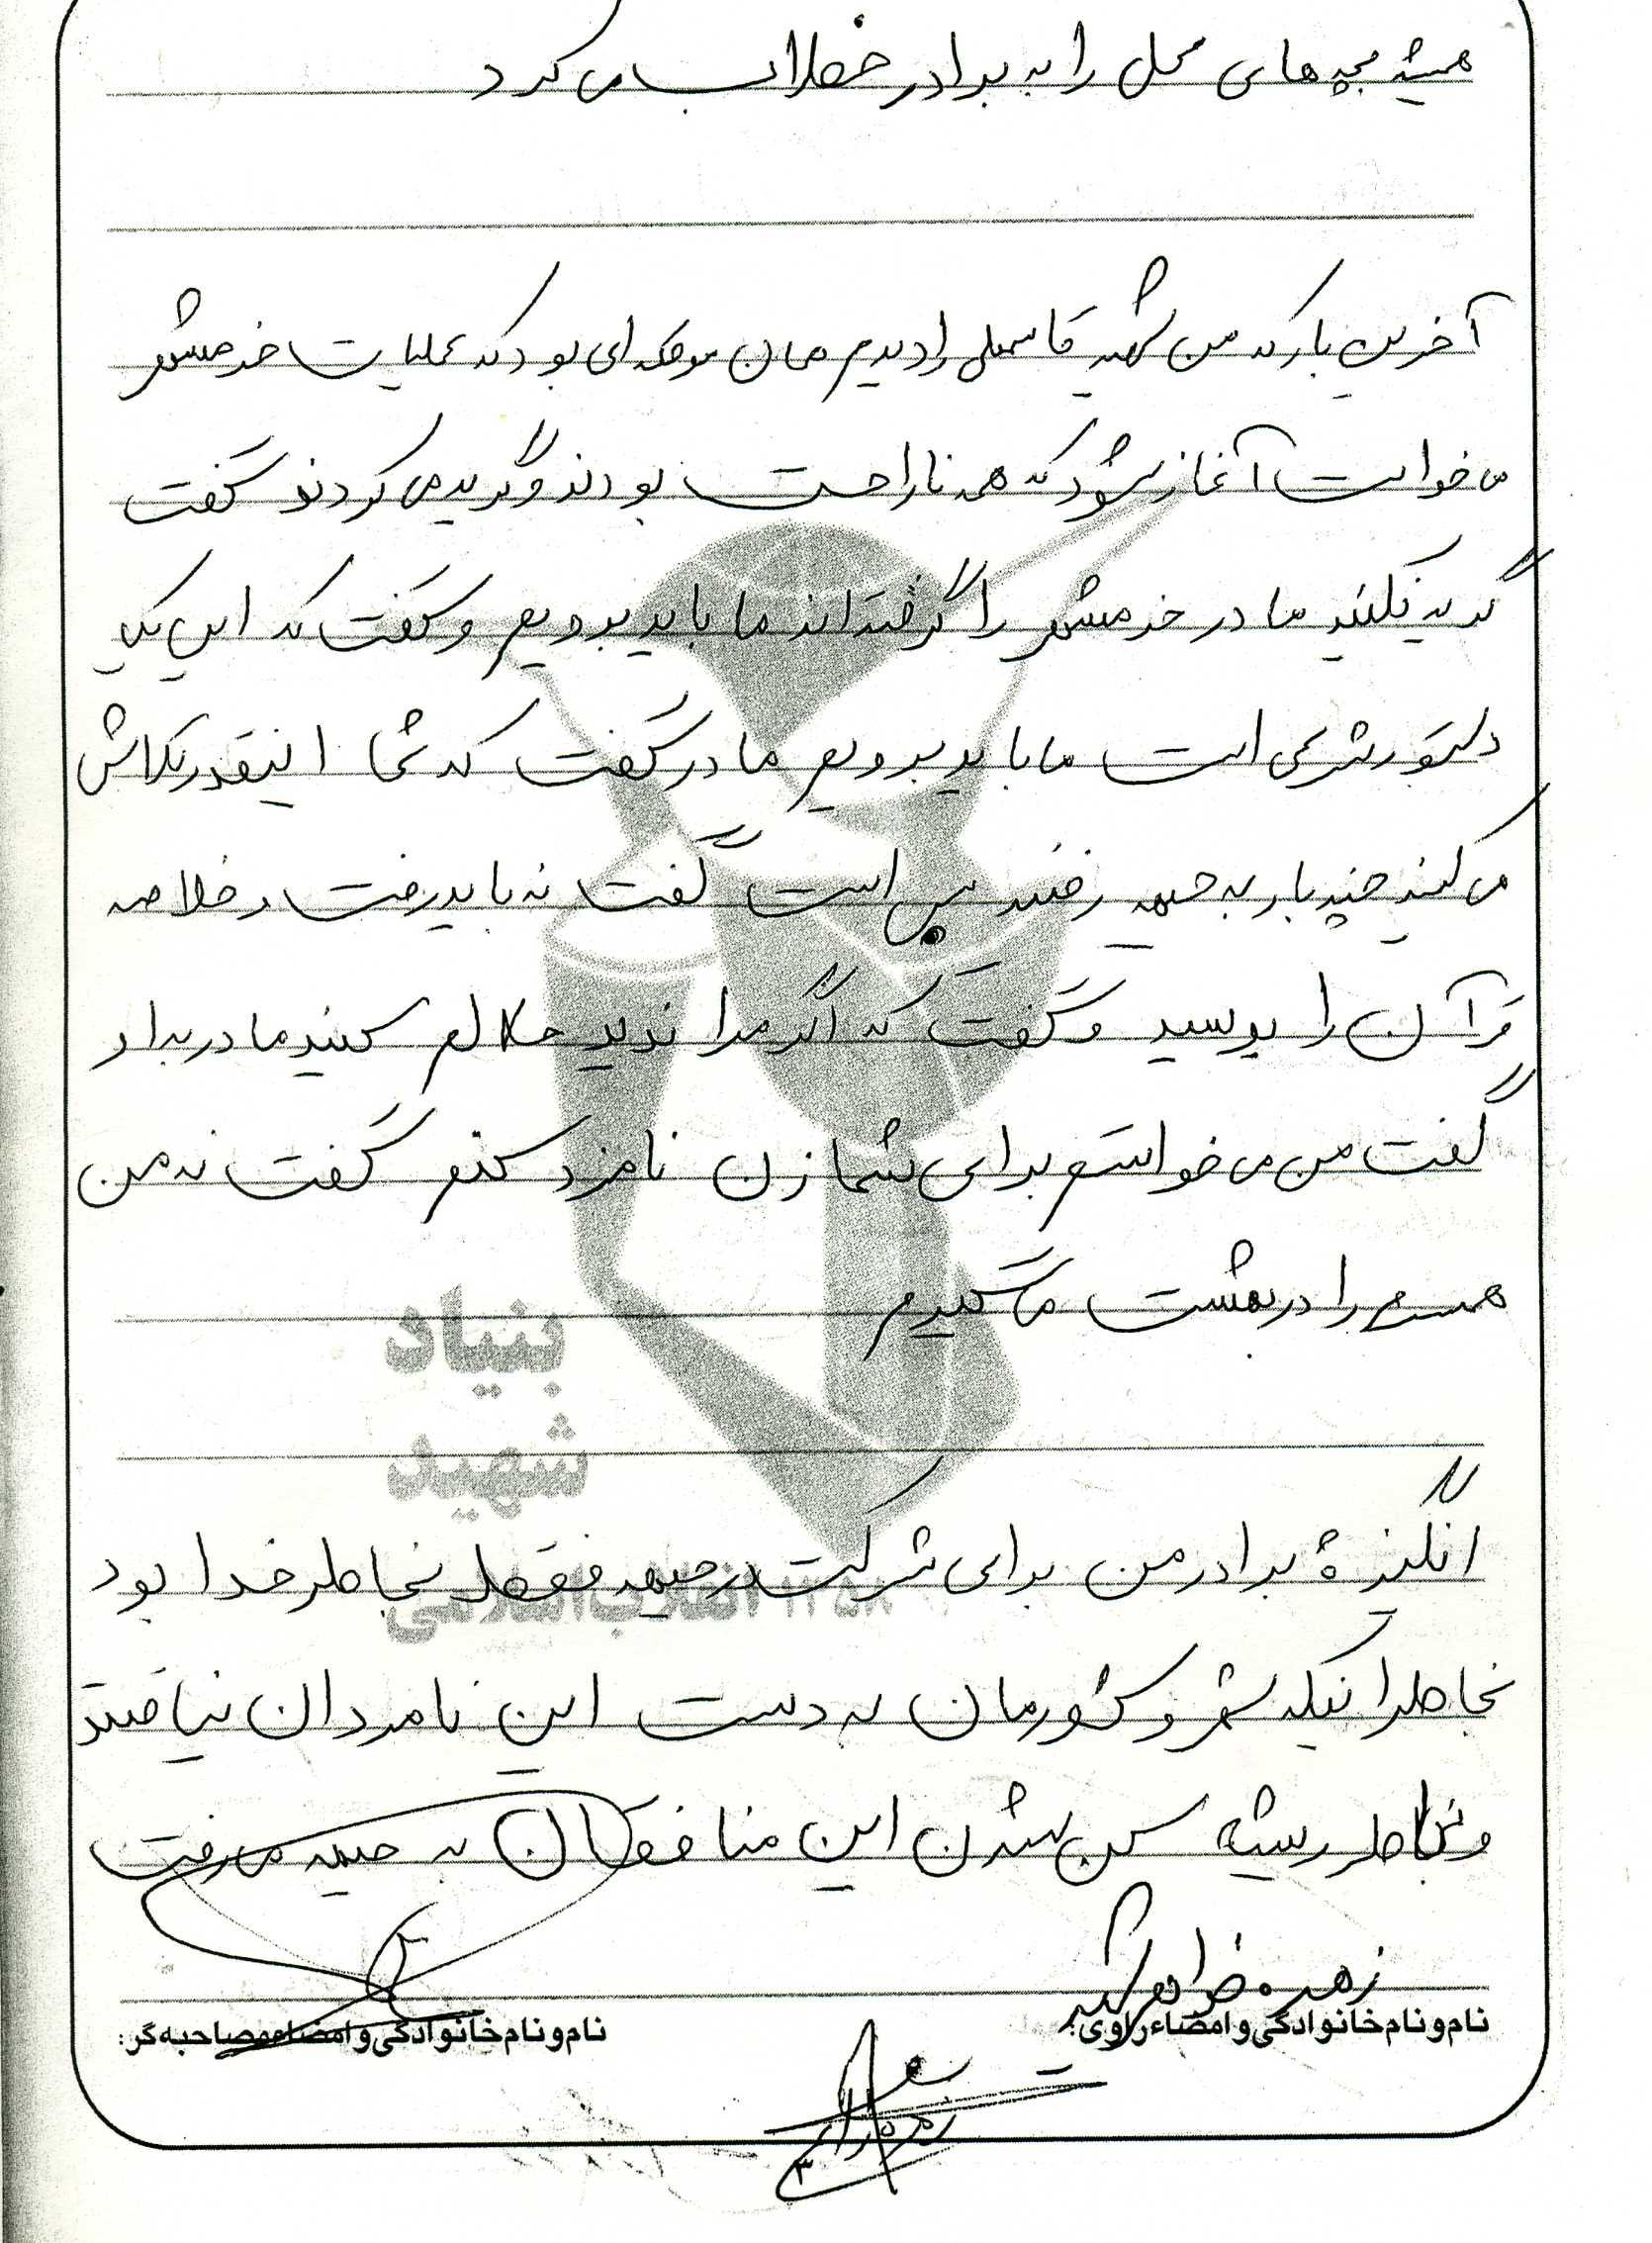 همیشه بچه های محل را به برادر خطاب می کرد
آخرین بار که من شهید قاسمعلی را دیدم همان موقعه ای بود که عملیات خرمشهر
می خواست آغاز شود که همه ناراحت بودند و گریه می کردند گفت
گریه نکنید مادر خرمشهر را گرفته اند ما باید برویم و گفت که این یک
دستور شرعی است ما باید برویم مادر گفت که شما اینقدر تلاش
می کنید چند بار به جبهه رفتید بس است گفت نه باید رفت و خلاصه
قرآن را بوسید و گفت که اگر مرا ندید حلالم کنید مادر به او
گفت من می خواستم برای شما زن نامزد کنم گفت نه من
همسرم را در بهشت می گیرم
بنیاد
شهید
انگیزهٔ برادر من برای شرکت در جبهه فقط بخاطر خدا بود
انقلاب اسلامی ۱۳۵۸
بخاطر اینکه شهر و کشورمان به دست این نامردان نیافتد
و بخاطر ریشه کن شدن این منافقان به جبهه می رفت
زهره خواهر شهید
نام و نام خانوادگی و امضاء راوی:
نام و نام خانوادگی و امضاء مصاحبه گر: